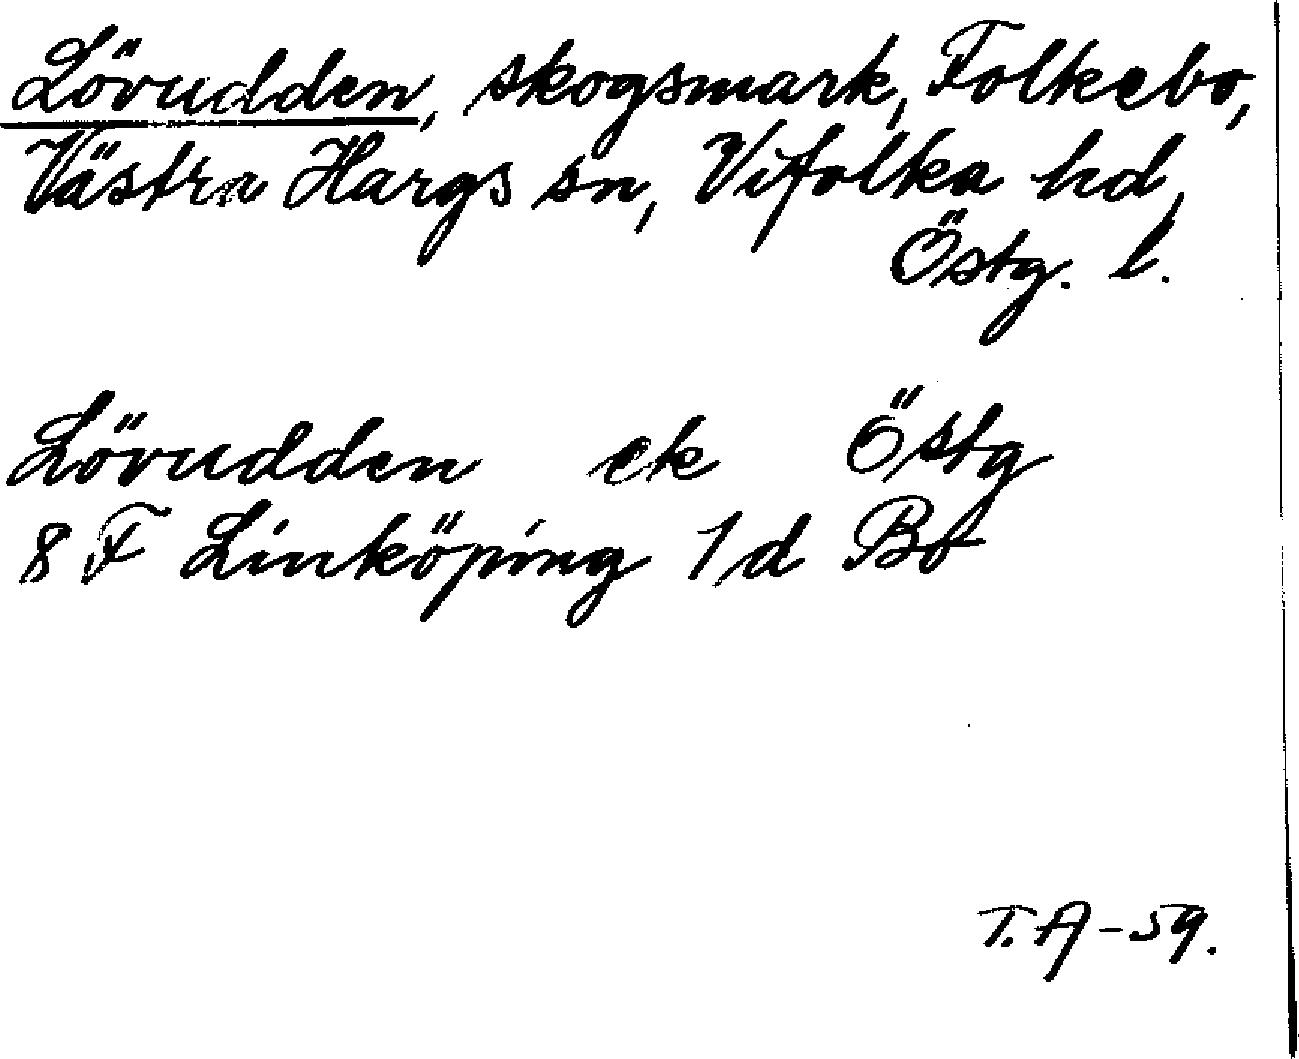 Lövudden, skogsmark, Folkebo,
Västra Hargs sn, Vifolka hd,
Östg. l.
Lövudden ek Östg
8 F Linköping 1d Bo
T.A-59.